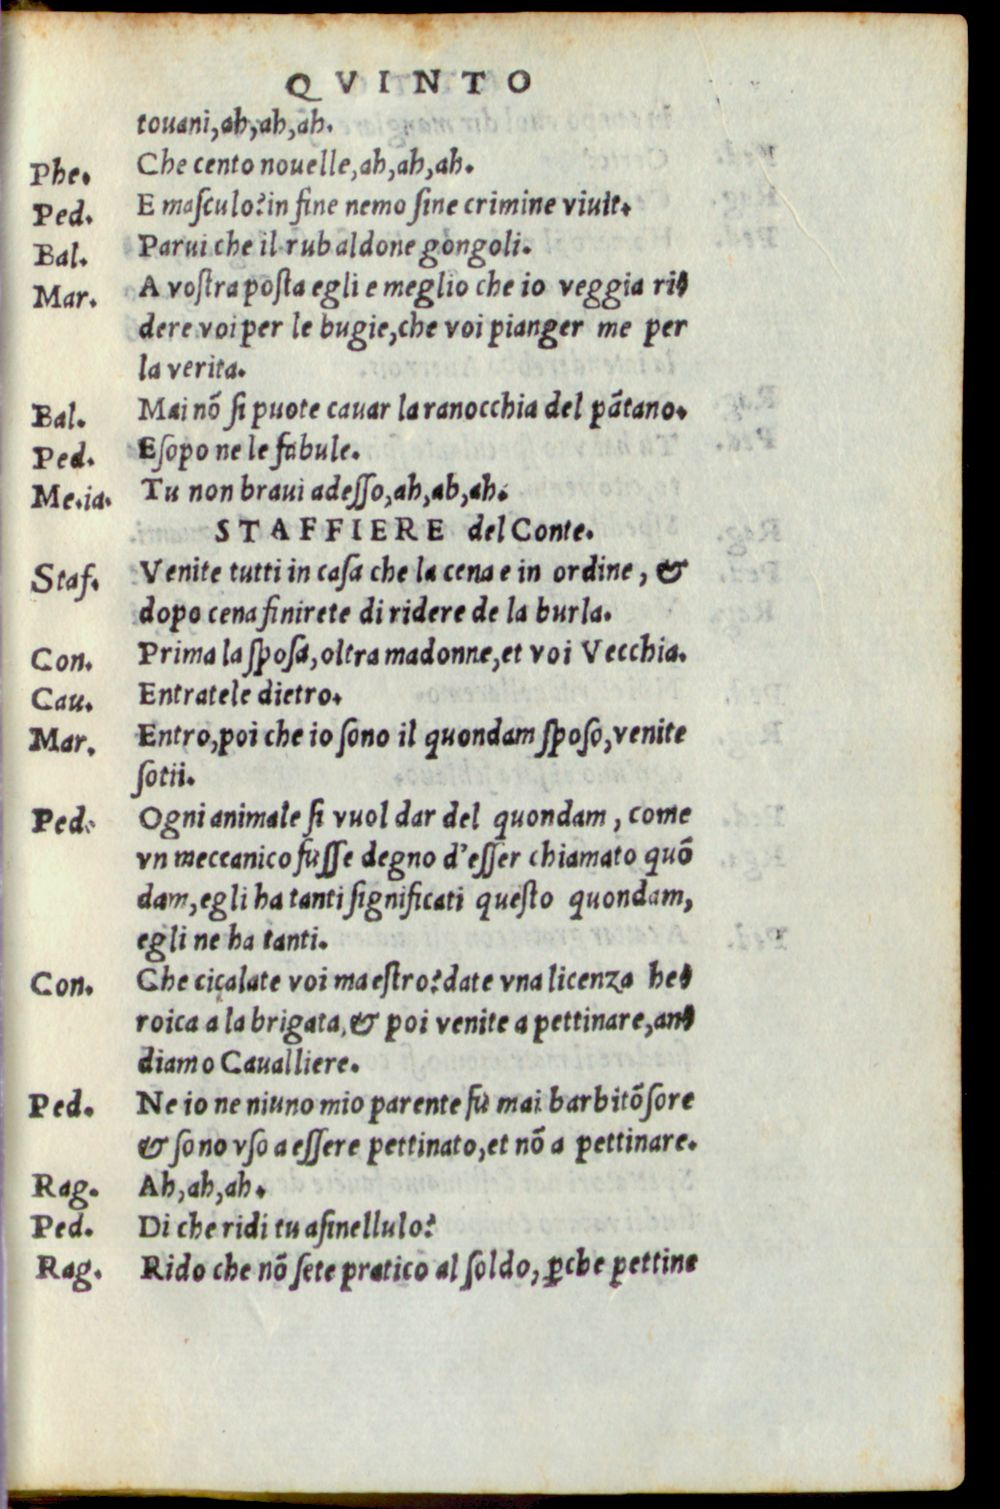 QVINTO
touani,ah,ah,ah.
Phe. Che cento nouelle,ah,ah,ah.
Ped. E maſculo?in fine nemo ſine crimine viuit.
Bal. Parui che il rubaldone gongoli.
Mar. A voſtra poſta egli e meglio che io veggia ri⸗
dere voi per le bugie,che voi pianger me per
la verita.
Bal. Mai nõ ſi puote cauar la ranocchia del pãtano.
Ped. Eſopo ne le fabule.
Me.ia. Tu non braui adeſſo,ah,ah,ah.
STAFFIERE del Conte.
Staf. Venite tutti in caſa che la cena e in ordine, &
dopo cena finirete di ridere de la burla.
Con. Prima la ſpoſa,oltra madonne,et voi Vecchia.
Cau. Entratele dietro.
Mar. Entro,poi che io ſono il quondam ſpoſo,venite
ſotii.
Ped. Ogni animale ſi vuol dar del quondam, come
vn meccanico fuſſe degno d'eſſer chiamato quõ
dam,egli ha tanti ſignificati queſto quondam,
egli ne ha tanti.
Con. Che cicalate voi maeſtro?date vna licenza he⸗
roica a la brigata,& poi venite a pettinare,an⸗
diamo Caualliere.
Ped. Ne io ne niuno mio parente fu mai barbitõſore
& ſono vſo a eſſere pettinato,et nõ a pettinare.
Rag. Ah,ah,ah.
Ped. Di che ridi tu aſinellulo?
Rag. Rido che nõ ſete pratico al ſoldo, ꝑche pettine